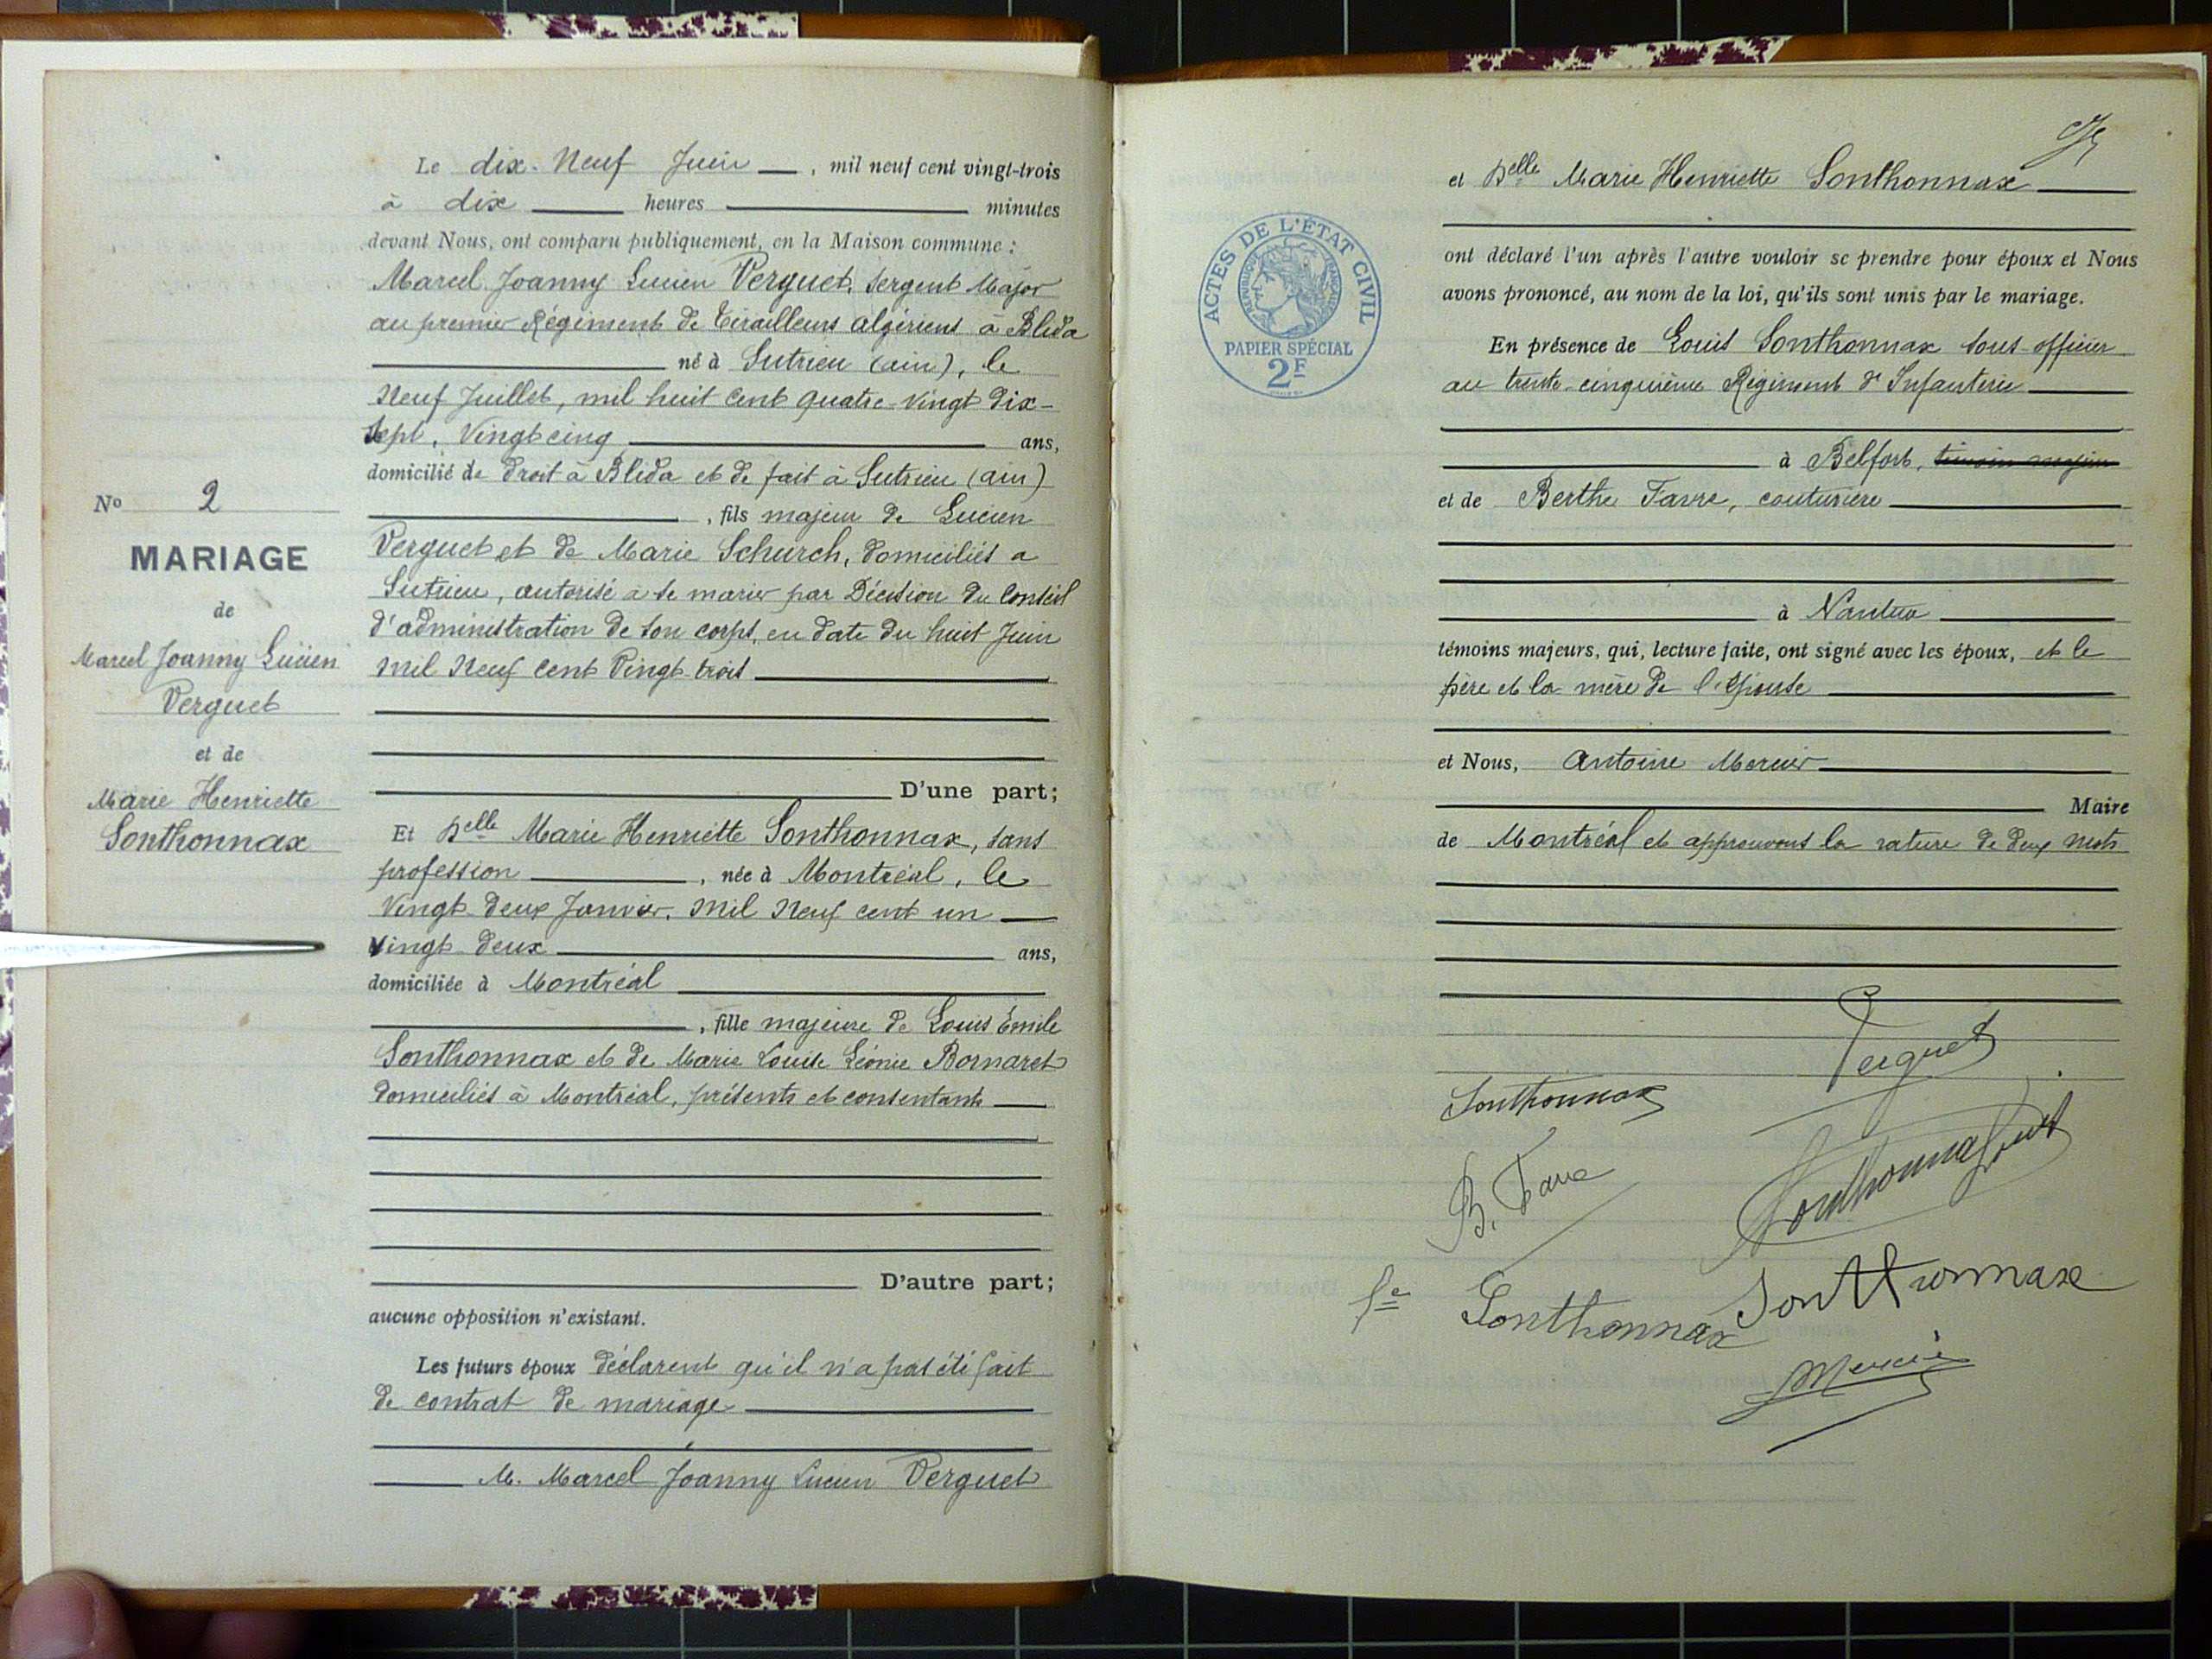 Le dix-Neuf Juin, mil neuf cent vingt-trois
à dix heures minutes
devant Nous, ont comparu publiquement, en la Maison commune :
Marcel Joanny Lucien Verguet, Sergent Major
au premier Régiment de Tirailleurs algériens à Blida
né à Sutrieu (ain), le
Neuf Juillet, mil huit Cent quatre-vingt Dix-
Sept, Vingt cinq ans,
domicilié de droit à Blida et de fait à Sutrieu (ain)
, fils majeur de Lucien
Verguet et de Marie Schurch, domiciliés a
Sutrieu, autorisé à se marier par Décision du Conseil
d'administration de son corps, en date du huit Juin
mil Neuf Cent Vingt-trois
D'une part;
Et Delle Marie Henriette Sonthonnax, sans
profession, née à Montréal, le
Vingt-Deux Janvier, Mil Neuf cent un
Vingt-deux ans,
domiciliée à Montréal
, fille majeure de Louis Émile
Sonthonnax et de Marie Louise Léonie Bornaret
domiciliés à Montréal, présents et consentants
D'autre part;
aucune opposition n'existant.
Les futurs époux déclarent qu'il n'a pas été fait
de contrat de mariage
M. Marcel Joanny Lucien Verguet
No 2
MARIAGE
de
Marcel Joanny Lucien
Verguet
et de
Marie Henriette
Sonthonnax
et Delle Marie Henriette Sonthonnax
ACTES DE L'ÉTAT CIVIL
RÉPUBLIQUE FRANÇAISE
PAPIER SPÉCIAL
2F
ont déclaré l'un après l'autre vouloir se prendre pour époux et Nous
avons prononcé, au nom de la loi, qu'ils sont unis par le mariage.
En présence de Louis Sonthonnax sous-officier
au trente-cinquième Régiment d'Infanterie
à Belfort, témoin majeur
et de Berthe Favre, couturière
à Nantua
témoins majeurs, qui, lecture faite, ont signé avec les époux, et le
père et la mère de l'épouse
et Nous, Antoine Mercier
Maire
de Montréal et approuvons la rature de deux mots
Verguet
Sonthonnax
Sonthonnax Louis
B. Favre
Sonthonnax
Sonthonnax
Mercier